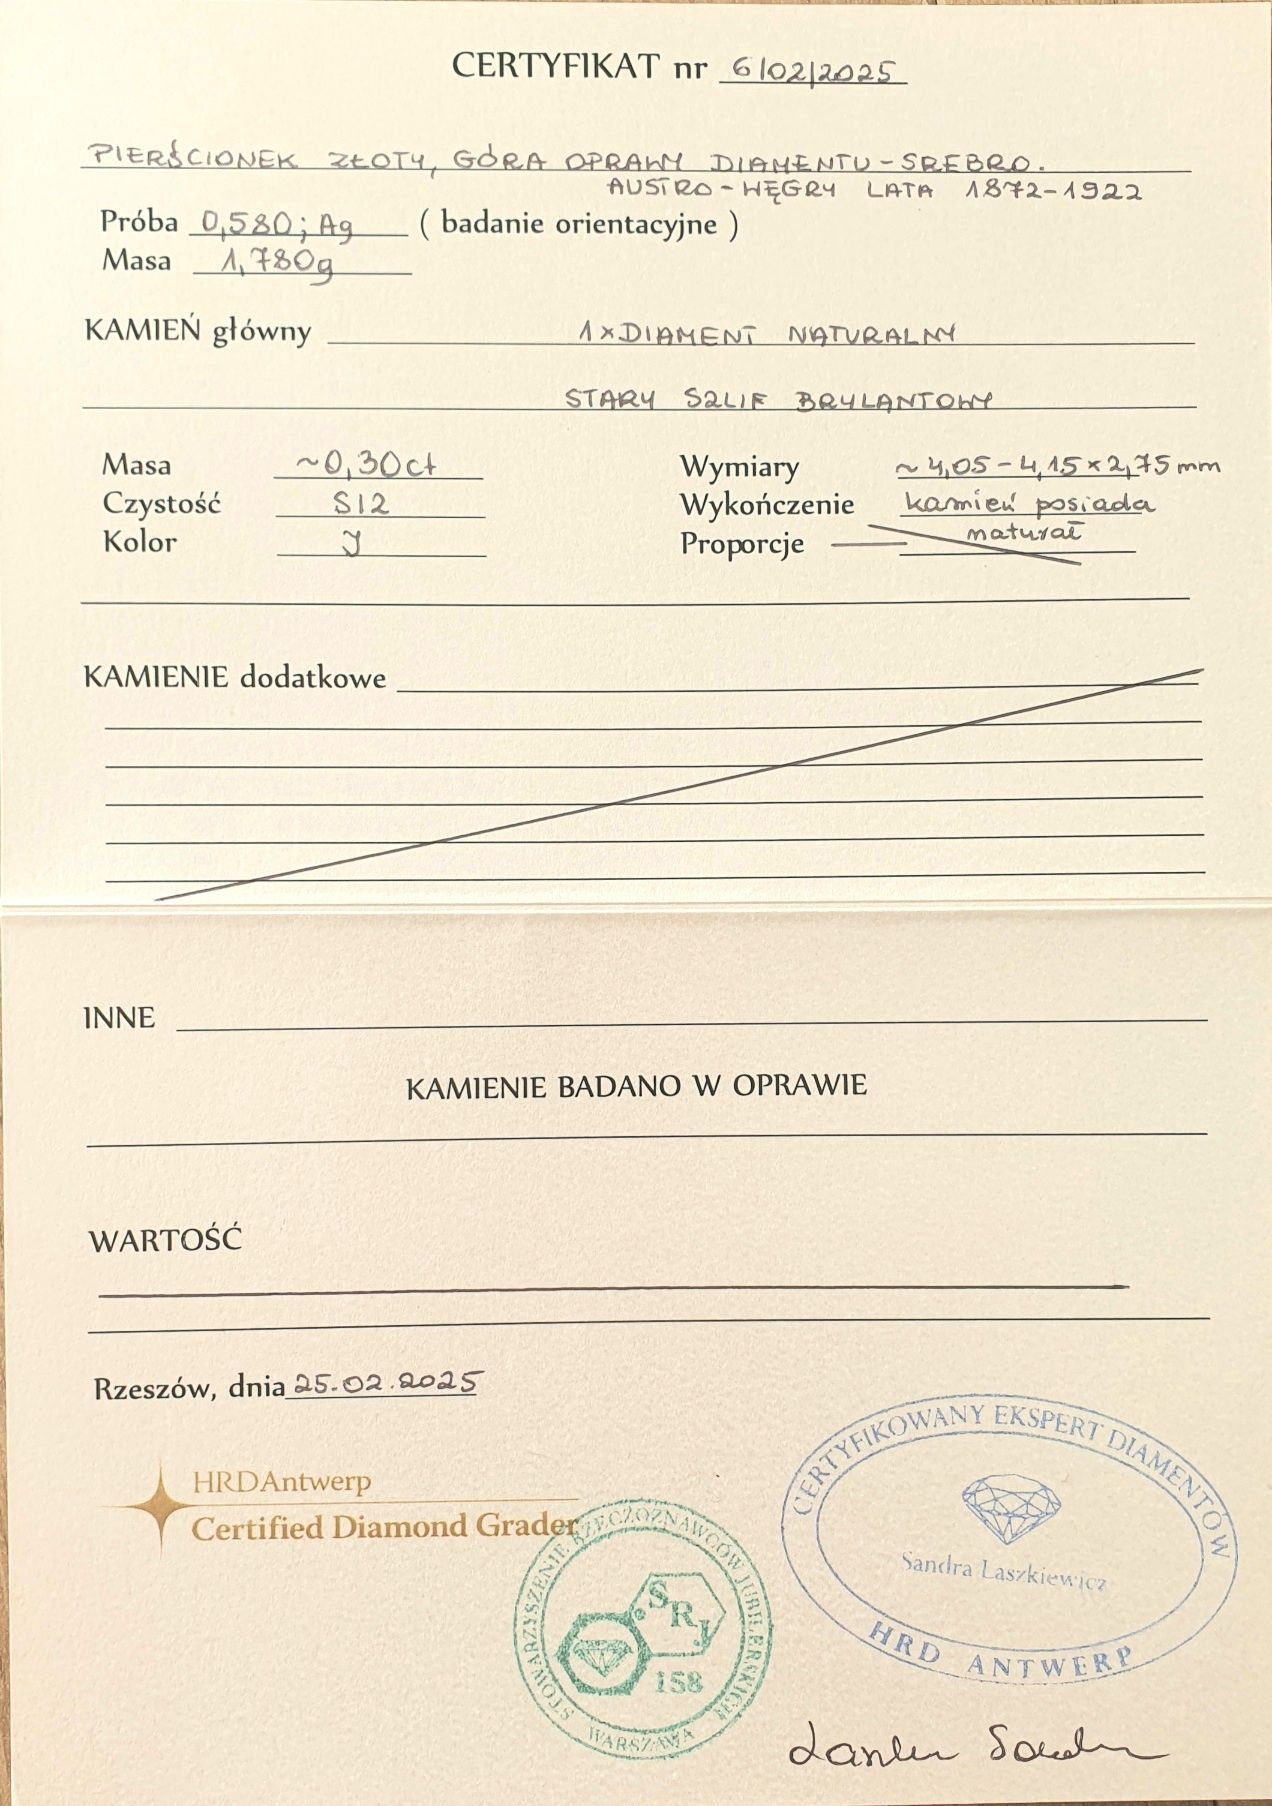 CERTYFIKAT nr 6/02/2025
PIERŚCIONEK ZŁOTY, GÓRA OPRAWY DIAMENTU - SREBRO.
AUSTRO - WĘGRY LATA 1872-1922
Próba 0,580; Ag ( badanie orientacyjne )
Masa 1,780g
KAMIEŃ główny 1xDIAMENT NATURALNY
STARY SZLIF BRYLANTOWY
Masa ~0,30ct Wymiary ~4,05-4,15x2,75mm
Czystość SI2 Wykończenie kamień posiada
Kolor J Proporcje naturał
KAMIENIE dodatkowe
INNE
KAMIENIE BADANO W OPRAWIE
WARTOŚĆ
Rzeszów, dnia 25.02.2025
HRDAntwerp
Certified Diamond Grader
STOWARZYSZENIE RZECZOZNAWCÓW JUBILERSKICH
SRJ
158
WARSZAWA
CERTYFIKOWANY EKSPERT DIAMENTÓW
Sandra Laszkiewicz
HRD ANTWERP